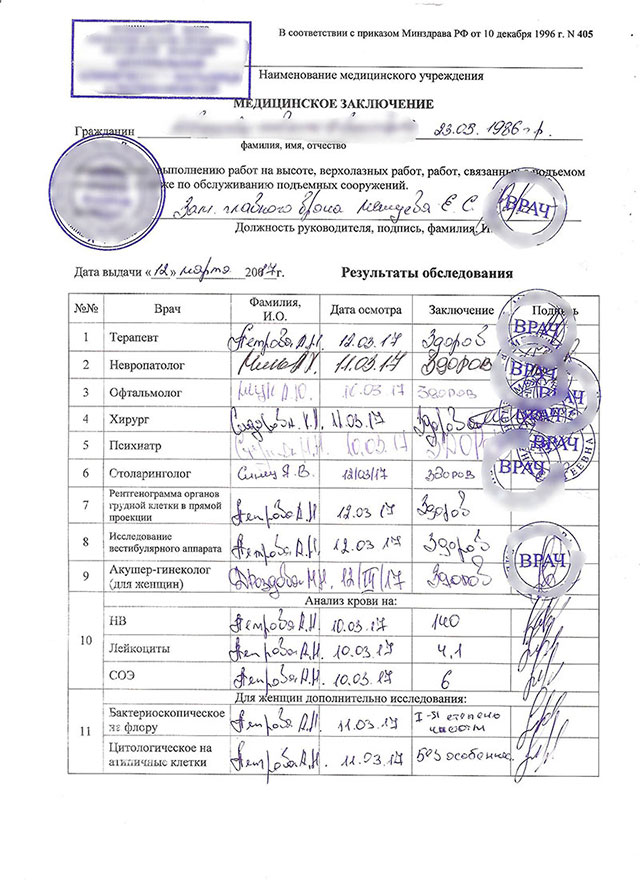 В соответствии с приказом Минздрава РФ от 10 декабря 1996 г. N 405
Наименование медицинского учреждения
МЕДИЦИНСКОЕ ЗАКЛЮЧЕНИЕ
Гражданин 23.05.1986 г.р.
фамилия, имя, отчество
выполнению работ на высоте, верхолазных работ, работ, связанны подъемом
же по обслуживанию подъемных сооружений.
Зам. главного врача Е. С. ВРАЧ
Должность руководителя, подпись, фамилия, И
Дата выдачи «12» марта 2017г. Результаты обследования
№№ Врач Фамилия, И.О. Дата осмотра Заключение Подпись
1 Терапевт Петрова А.Н. 12.03.17 Здоров ВРАЧ
2 Невропатолог 11.03.17 Здоров ВРАЧ
3 Офтальмолог 10.03.17 здоров ВРАЧ
4 Хирург 11.03.17 Здоров
5 Психиатр 10.03.17 ВРАЧ
6 Отоларинголог Я.В. 12/03/17 здоров ВРАЧ
7 Рентгенограмма органов грудной клетки в прямой проекции Петрова А.Н. 12.03.17 Здоров
8 Исследование вестибулярного аппарата Петрова А.Н. 12.03.17 Здоров
9 Акушер-гинеколог (для женщин) 12/III/17 Здоров ВРАЧ
10 Анализ крови на:
НВ Петрова А.Н. 10.03.17 140
Лейкоциты Петрова А.Н. 10.03.17 4,1
СОЭ Петрова А.Н. 10.03.17 6
11 Для женщин дополнительно исследования:
Бактериоскопическое на флору Петрова А.Н. 11.03.17 I-я степень
Цитологическое на атипичные клетки Петрова А.Н. 11.03.17 Без